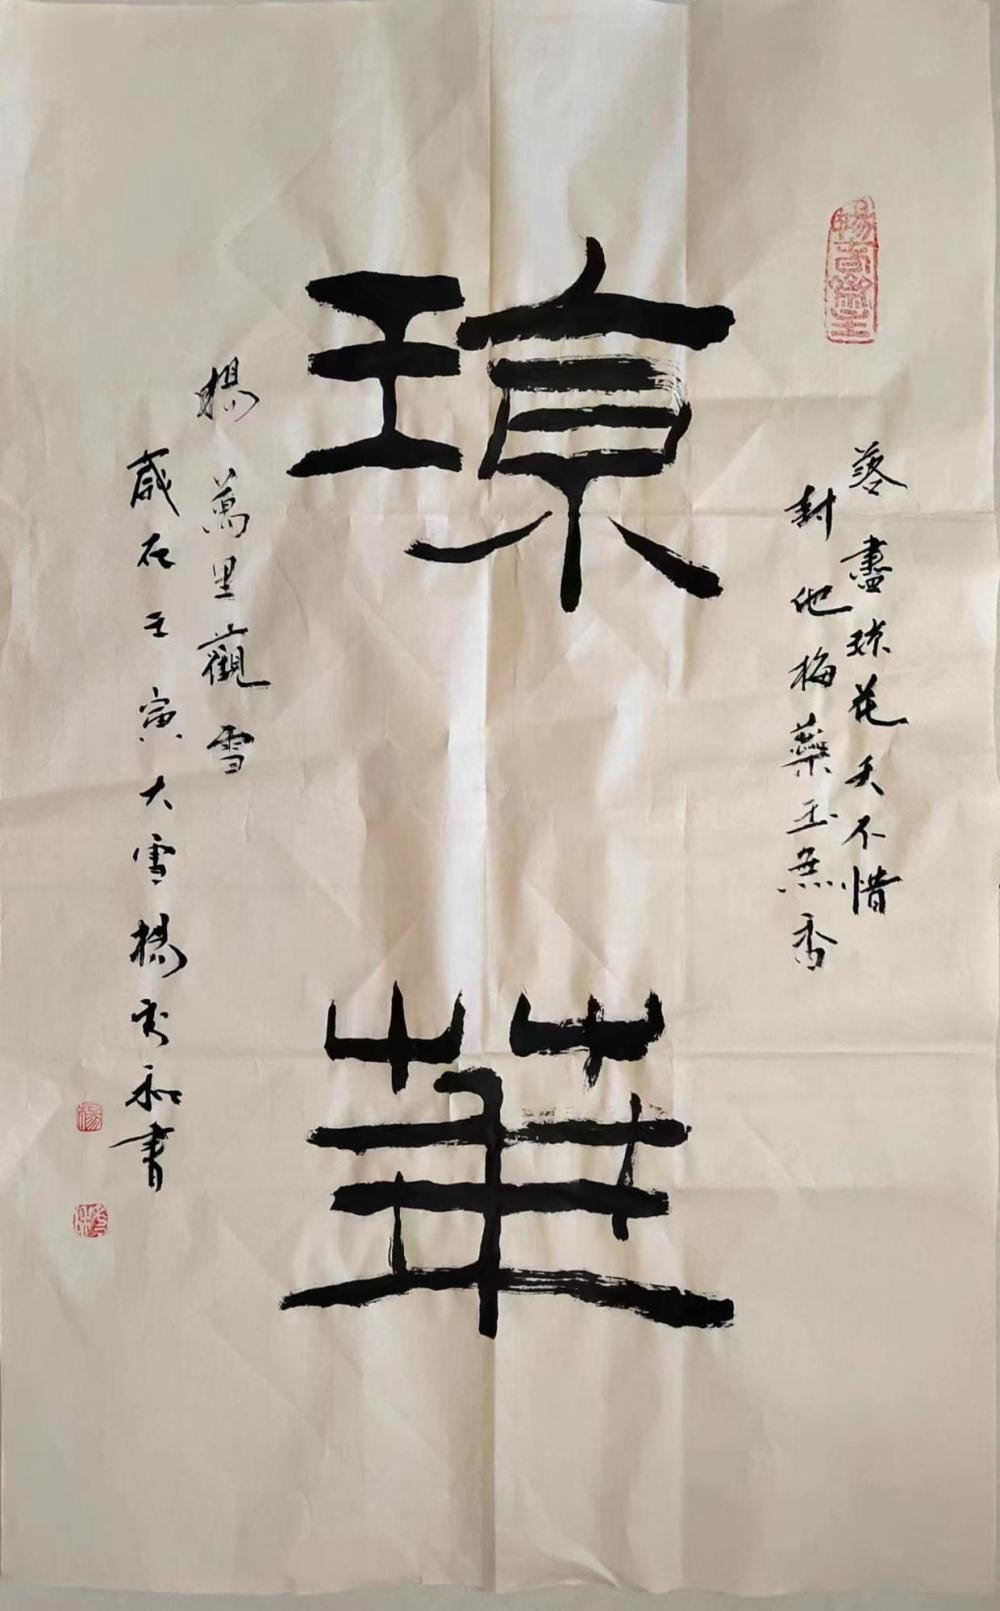 落盡琼花天不惜
封他梅蘂玉無香
琼華
楊萬里觀雪
歲在壬寅大雪楊秀和書
楊